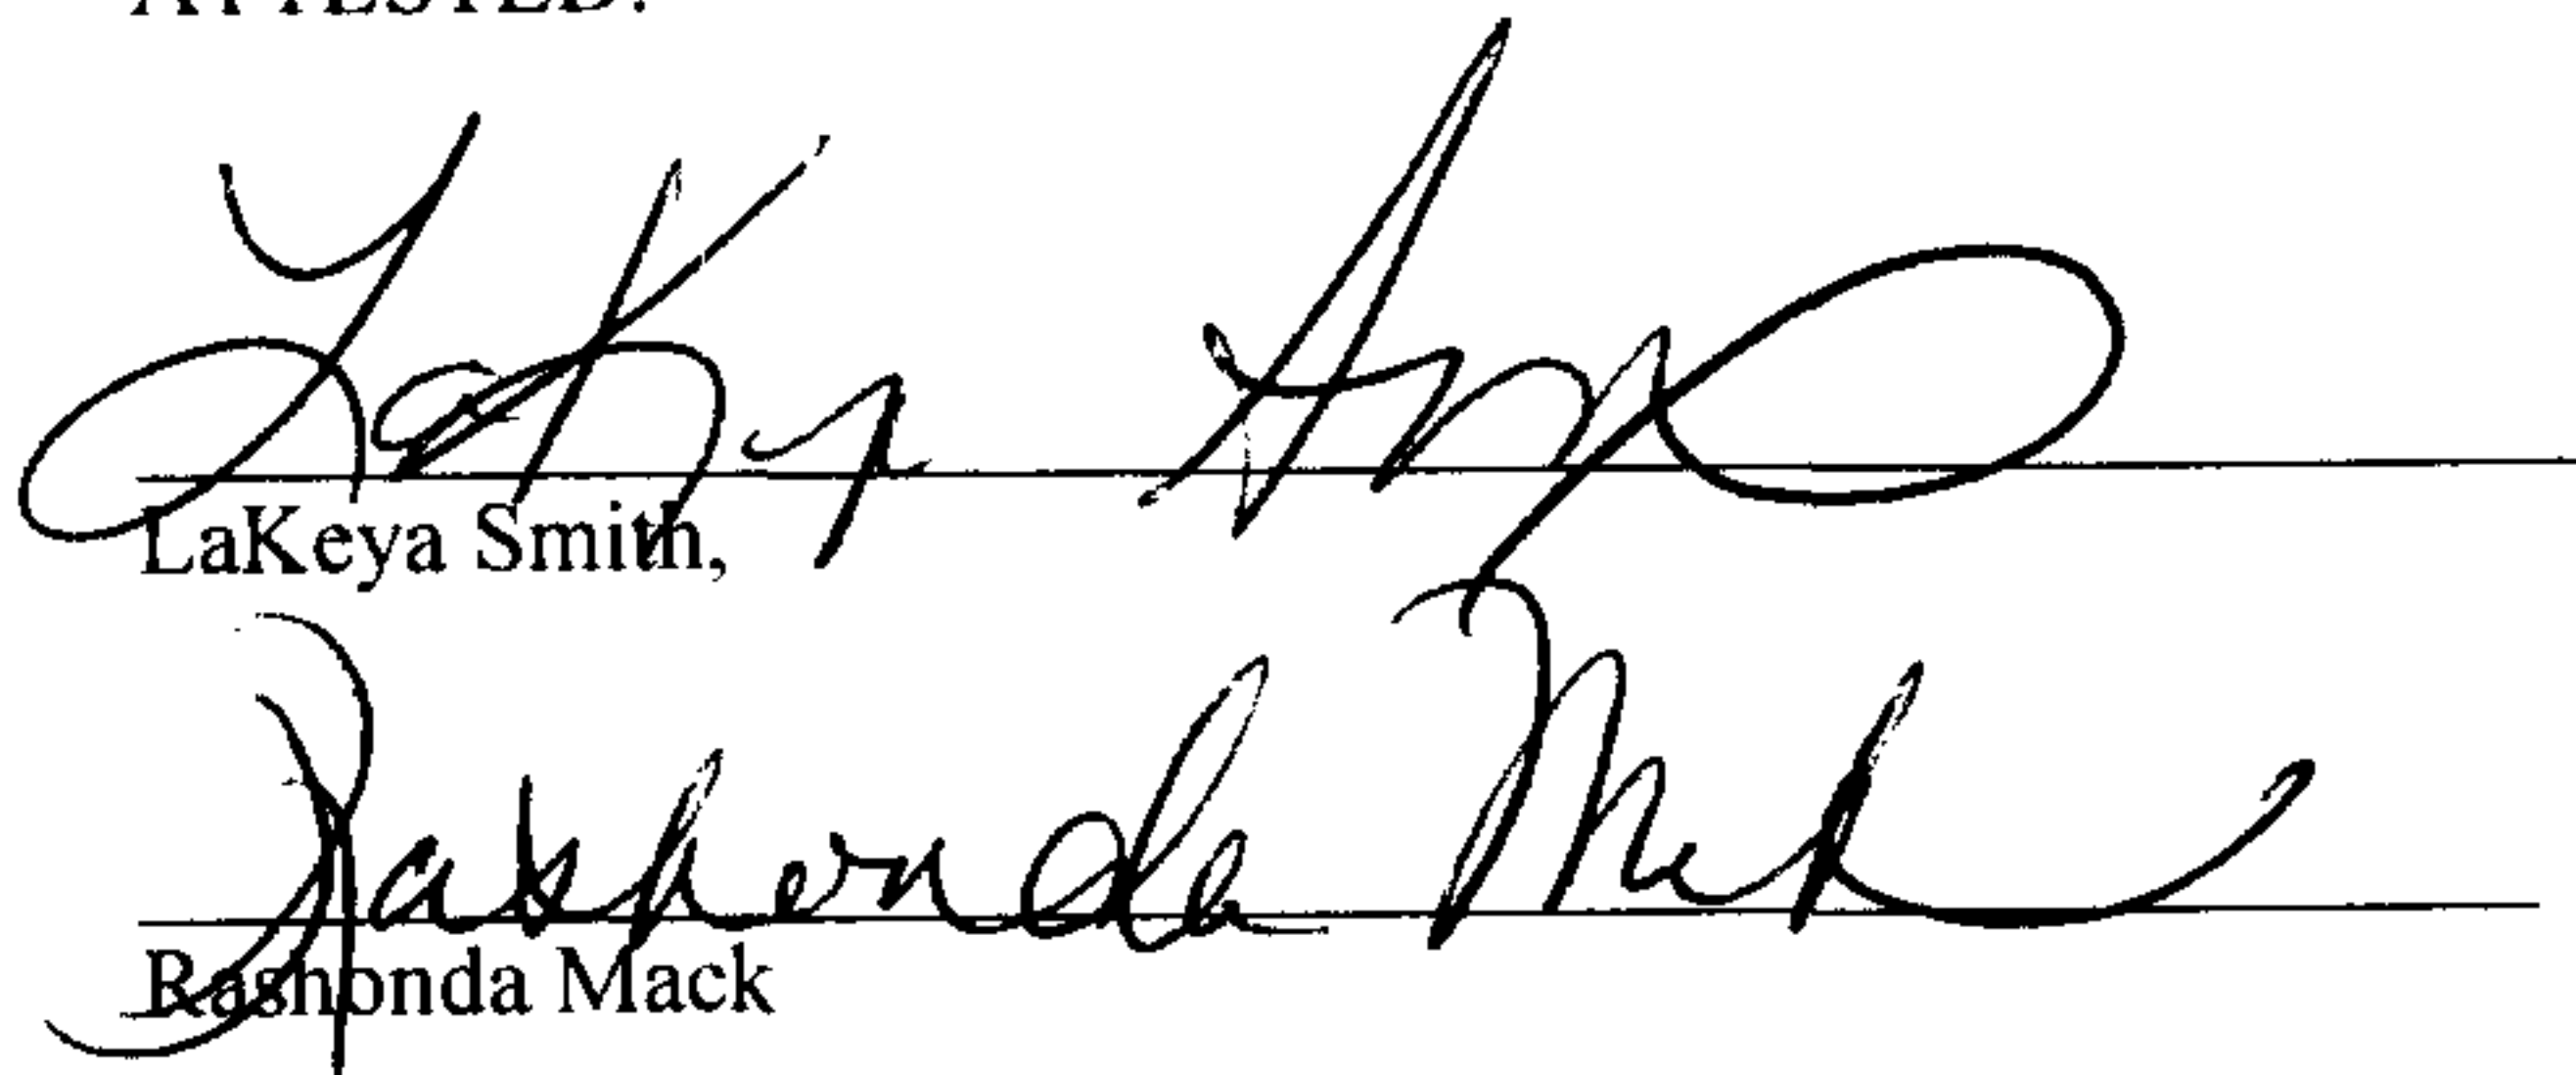 ATTESTED:
LaKeya Smith,
Rashonda Mack
Rashonda Mack